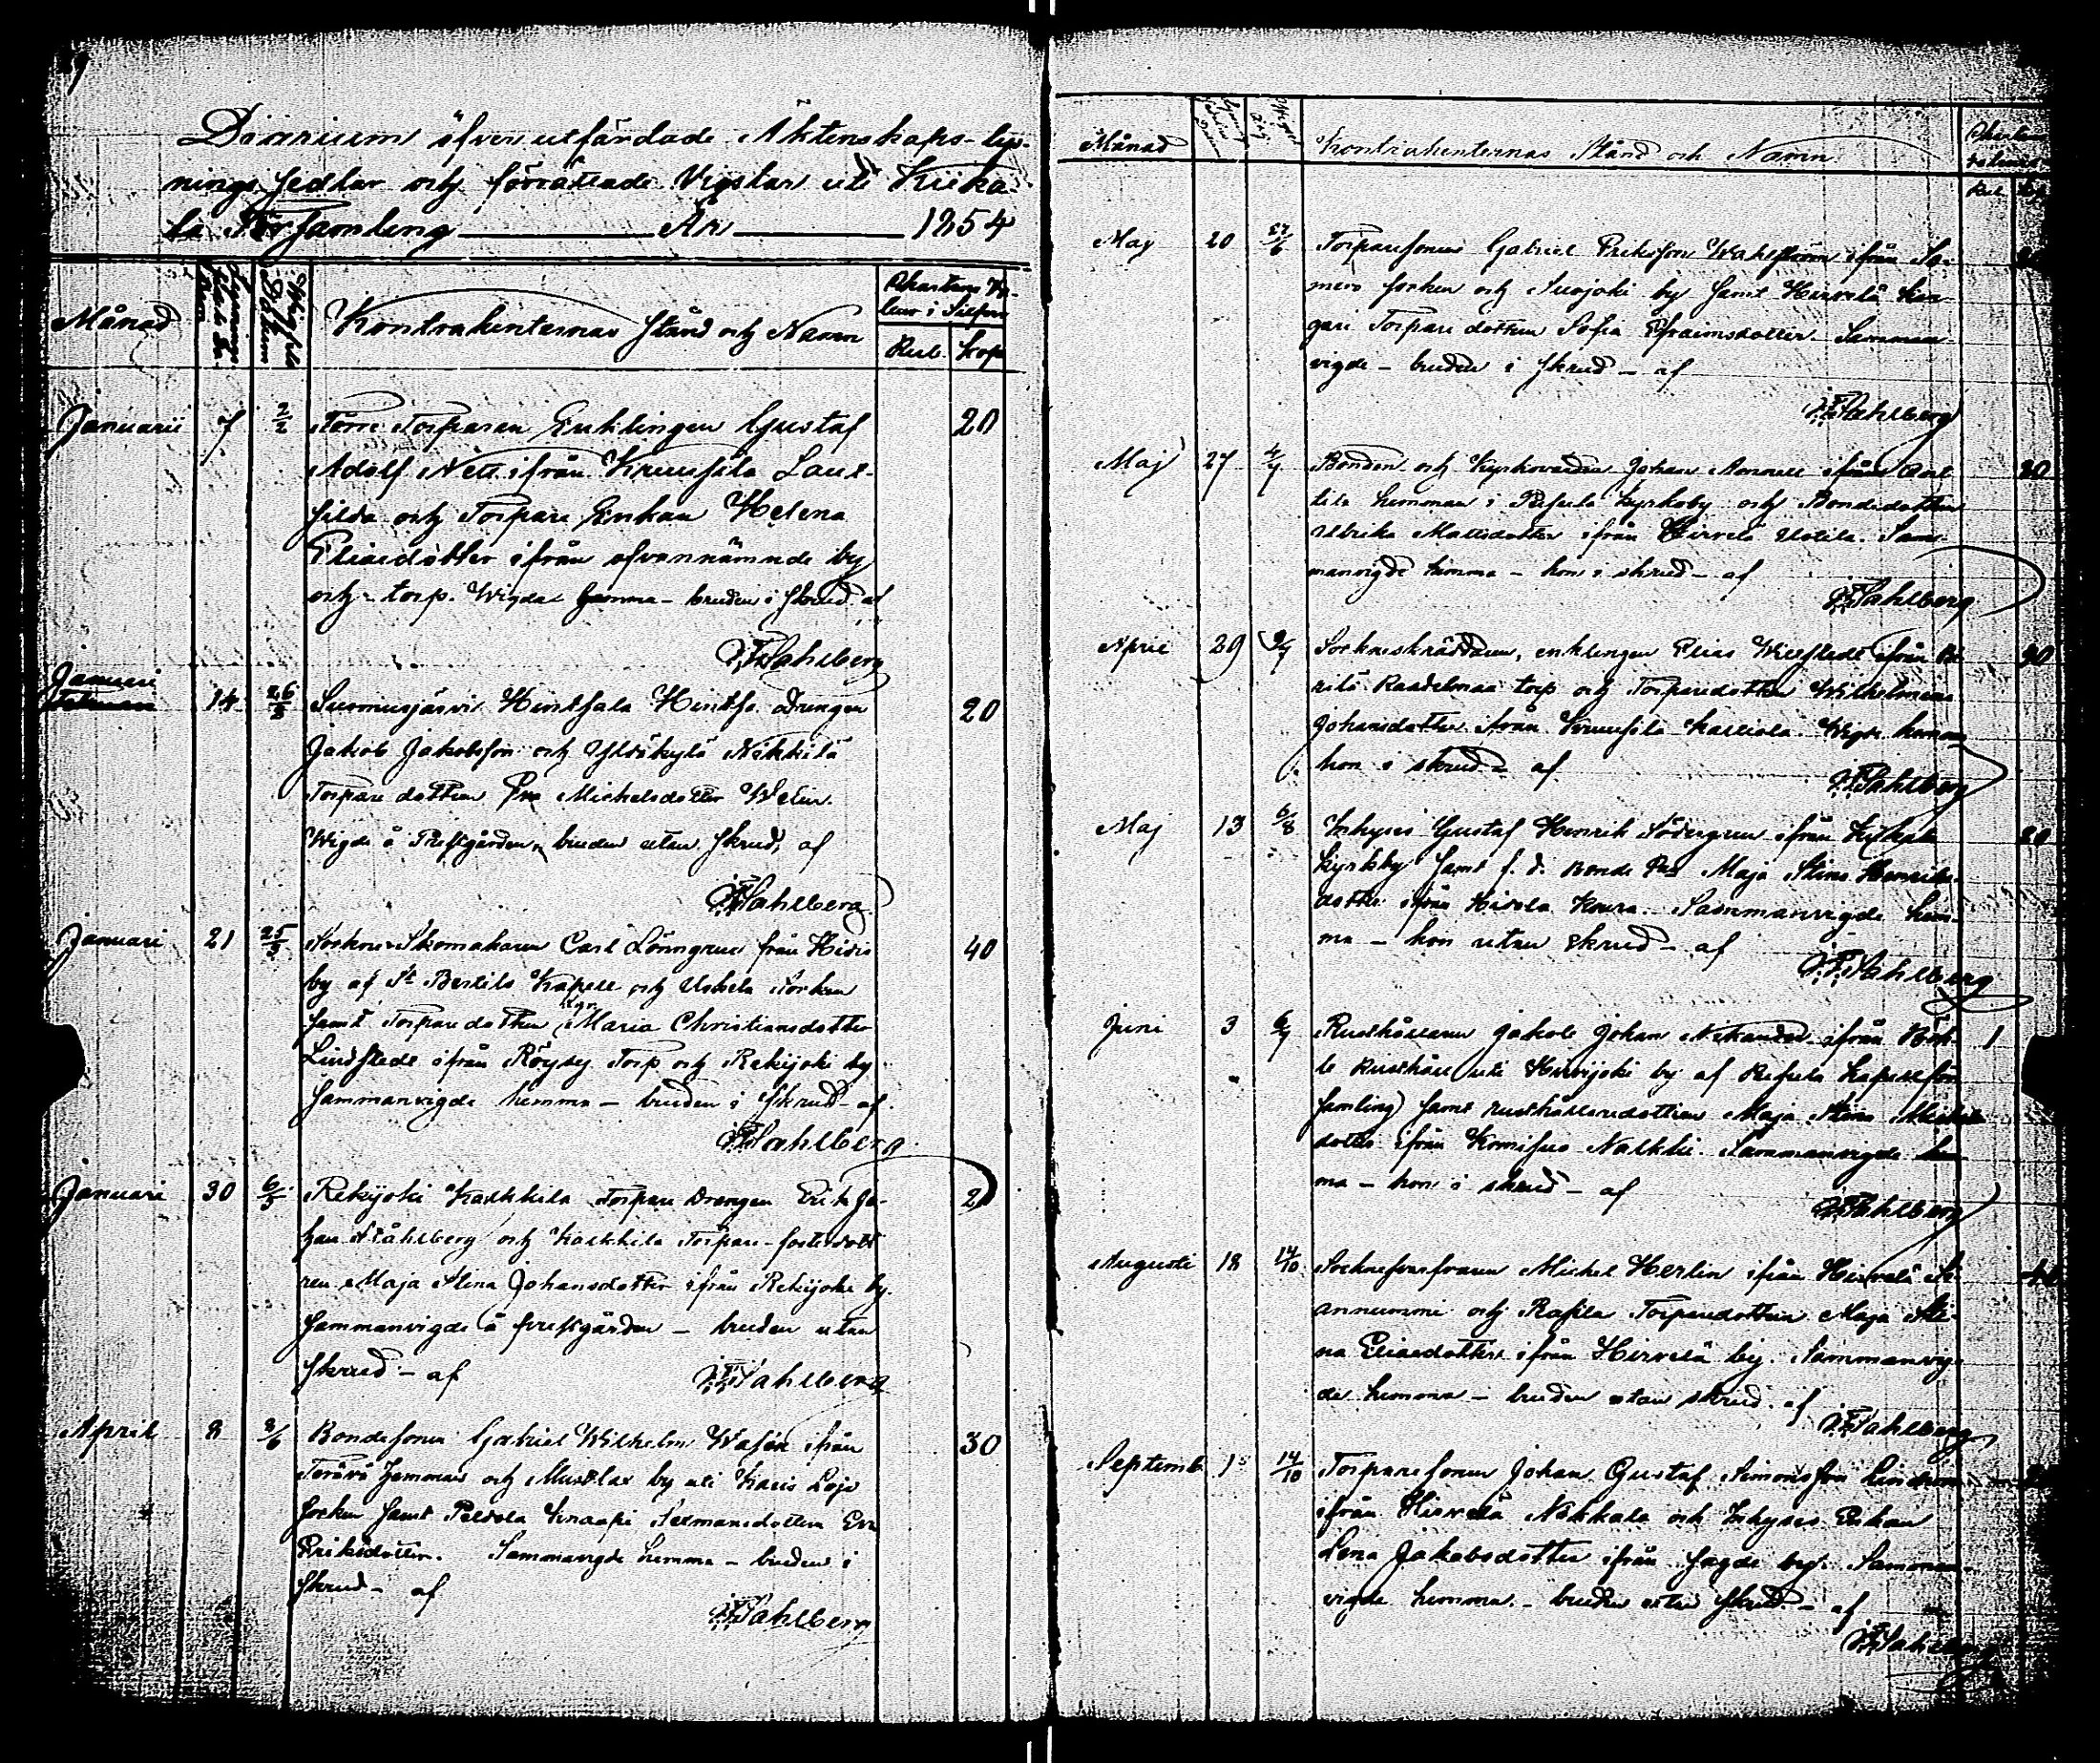 Diarium öfver utfärdade Äktenskaps-lys-
nings sedlar och förrättade Vigslar uti Kiika-
la Församling År 1854
Månad
Kontrahenternas stånd och Namn
Rub. Kop
Januarii 7 2/2 Förre Torparen Enklingen Gustaf 20
Adolf Nett ifrån Kruusila Laux-
silda och Torpare Enkan Helena
Eliaedotter ifrån ofvannämnde by
och torp. Wigda hemma - bruden i skrud af
Wahlberg
Januari 14 26/3 Suomusjärvi Hintsala Hintsa Drengen 20
Jakob Jakobsson och Yltäkylä Nikkilä
Torpare dottren Eva Michelsdotter Welin.
Wigde å Prestgården, bruden utan skrud, af
Wahlberg
Januari 21 25/3 Sockne Skomakaren Carl Lönngren från Hidis 40
by af St Bertils Kapell och Uskela Socken
samt Torpare dottren Maria Christiansdotter
Lindstedt ifrån Röysy Torp och Rekijoki by
sammanvigde hemma - bruden i skrud - af
Wahlberg
Januari 30 6/5 Rekijoki Kaskkila Torpare Drengen Erik Jo- 20
han Ståhlberg och Kaskkila Torpare-fosterdott
ren Maja Stina Johansdotter ifrån Rekijoki by.
sammanvigde å prestgården - bruden utan
skrud - af Wahlberg
April 8 3/6 Bondesonen Gabriel Wilhelm Wasén ifrån 30
Terävä hemman och Mustlax by uti Karis Lojo
socken samt Peldola Knaapi Sexmansdottern Eva
Eriksdotter. Sammanvigde hemma - bruden i
skrud - af
Wahlberg
Månad
Kontrahenternas Stånd och Namn
Maj 20 27/6 Torparesonen Gabriel Eriksson Wahlström ifrån So-
mero socken och Suojoki by samt Hirvelä Kan-
gari Torpare dottren Sofia Efraimsdotter. Samman-
vigde - bruden i skrud - af
Wahlberg
Maj 27 4/7 Bonden och Kyrkovärden Johan ifrån 20
tila hemman i kyrkoby och Bondedottren
Ulrika Mattsdotter ifrån Hirvelä Uotila. Sam-
manvigde hemma - hon i skrud - af
Wahlberg
April 29 9/7 Sockneskräddaren, enklingen Elias Willstedt ifrån 20
torp och Torparedottren Wilhelmina
Johansdotter ifrån Kruusila Kalliola. Wigde hemma
hon i skrud - af
Wahlberg
Maj 13 6/8 Inhyses Gustaf Henrik Södergren ifrån Kiikala 20
kyrkby samt f. d. Bonde Maja Stina Henriks-
dotter ifrån Hirvelä Sammanvigde hem-
ma - hon utan skrud - af
Wahlberg
Juni 3 6/7 Rusthållaren Jakob Johan Nikander ifrån 1
le Rusthåll uti Hirvijoki by af kapellför
samling samt rusthållaredottren Maja Stina Michels
dotter ifrån Komisuo Nalkki. Sammanvigde hem
ma - hon i skrud - af
Wahlberg
Augusti 18 14/10 Michel Herlin ifrån Hirvelä
annummi och Torparedottren Maja Sti-
na Eliaedotter ifrån Hirvelä by. Sammanvig-
de hemma - bruden utan skrud - af
Wahlberg
Septemb. 1 14/10 Torparesonen Johan Gustaf Simonsson
ifrån Hirvelä Nikkala och Inhyses Enkan
Lena Jakobsdotter ifrån sagde by. Samman-
vigde hemma - bruden utan skrud. - af
Wahlberg